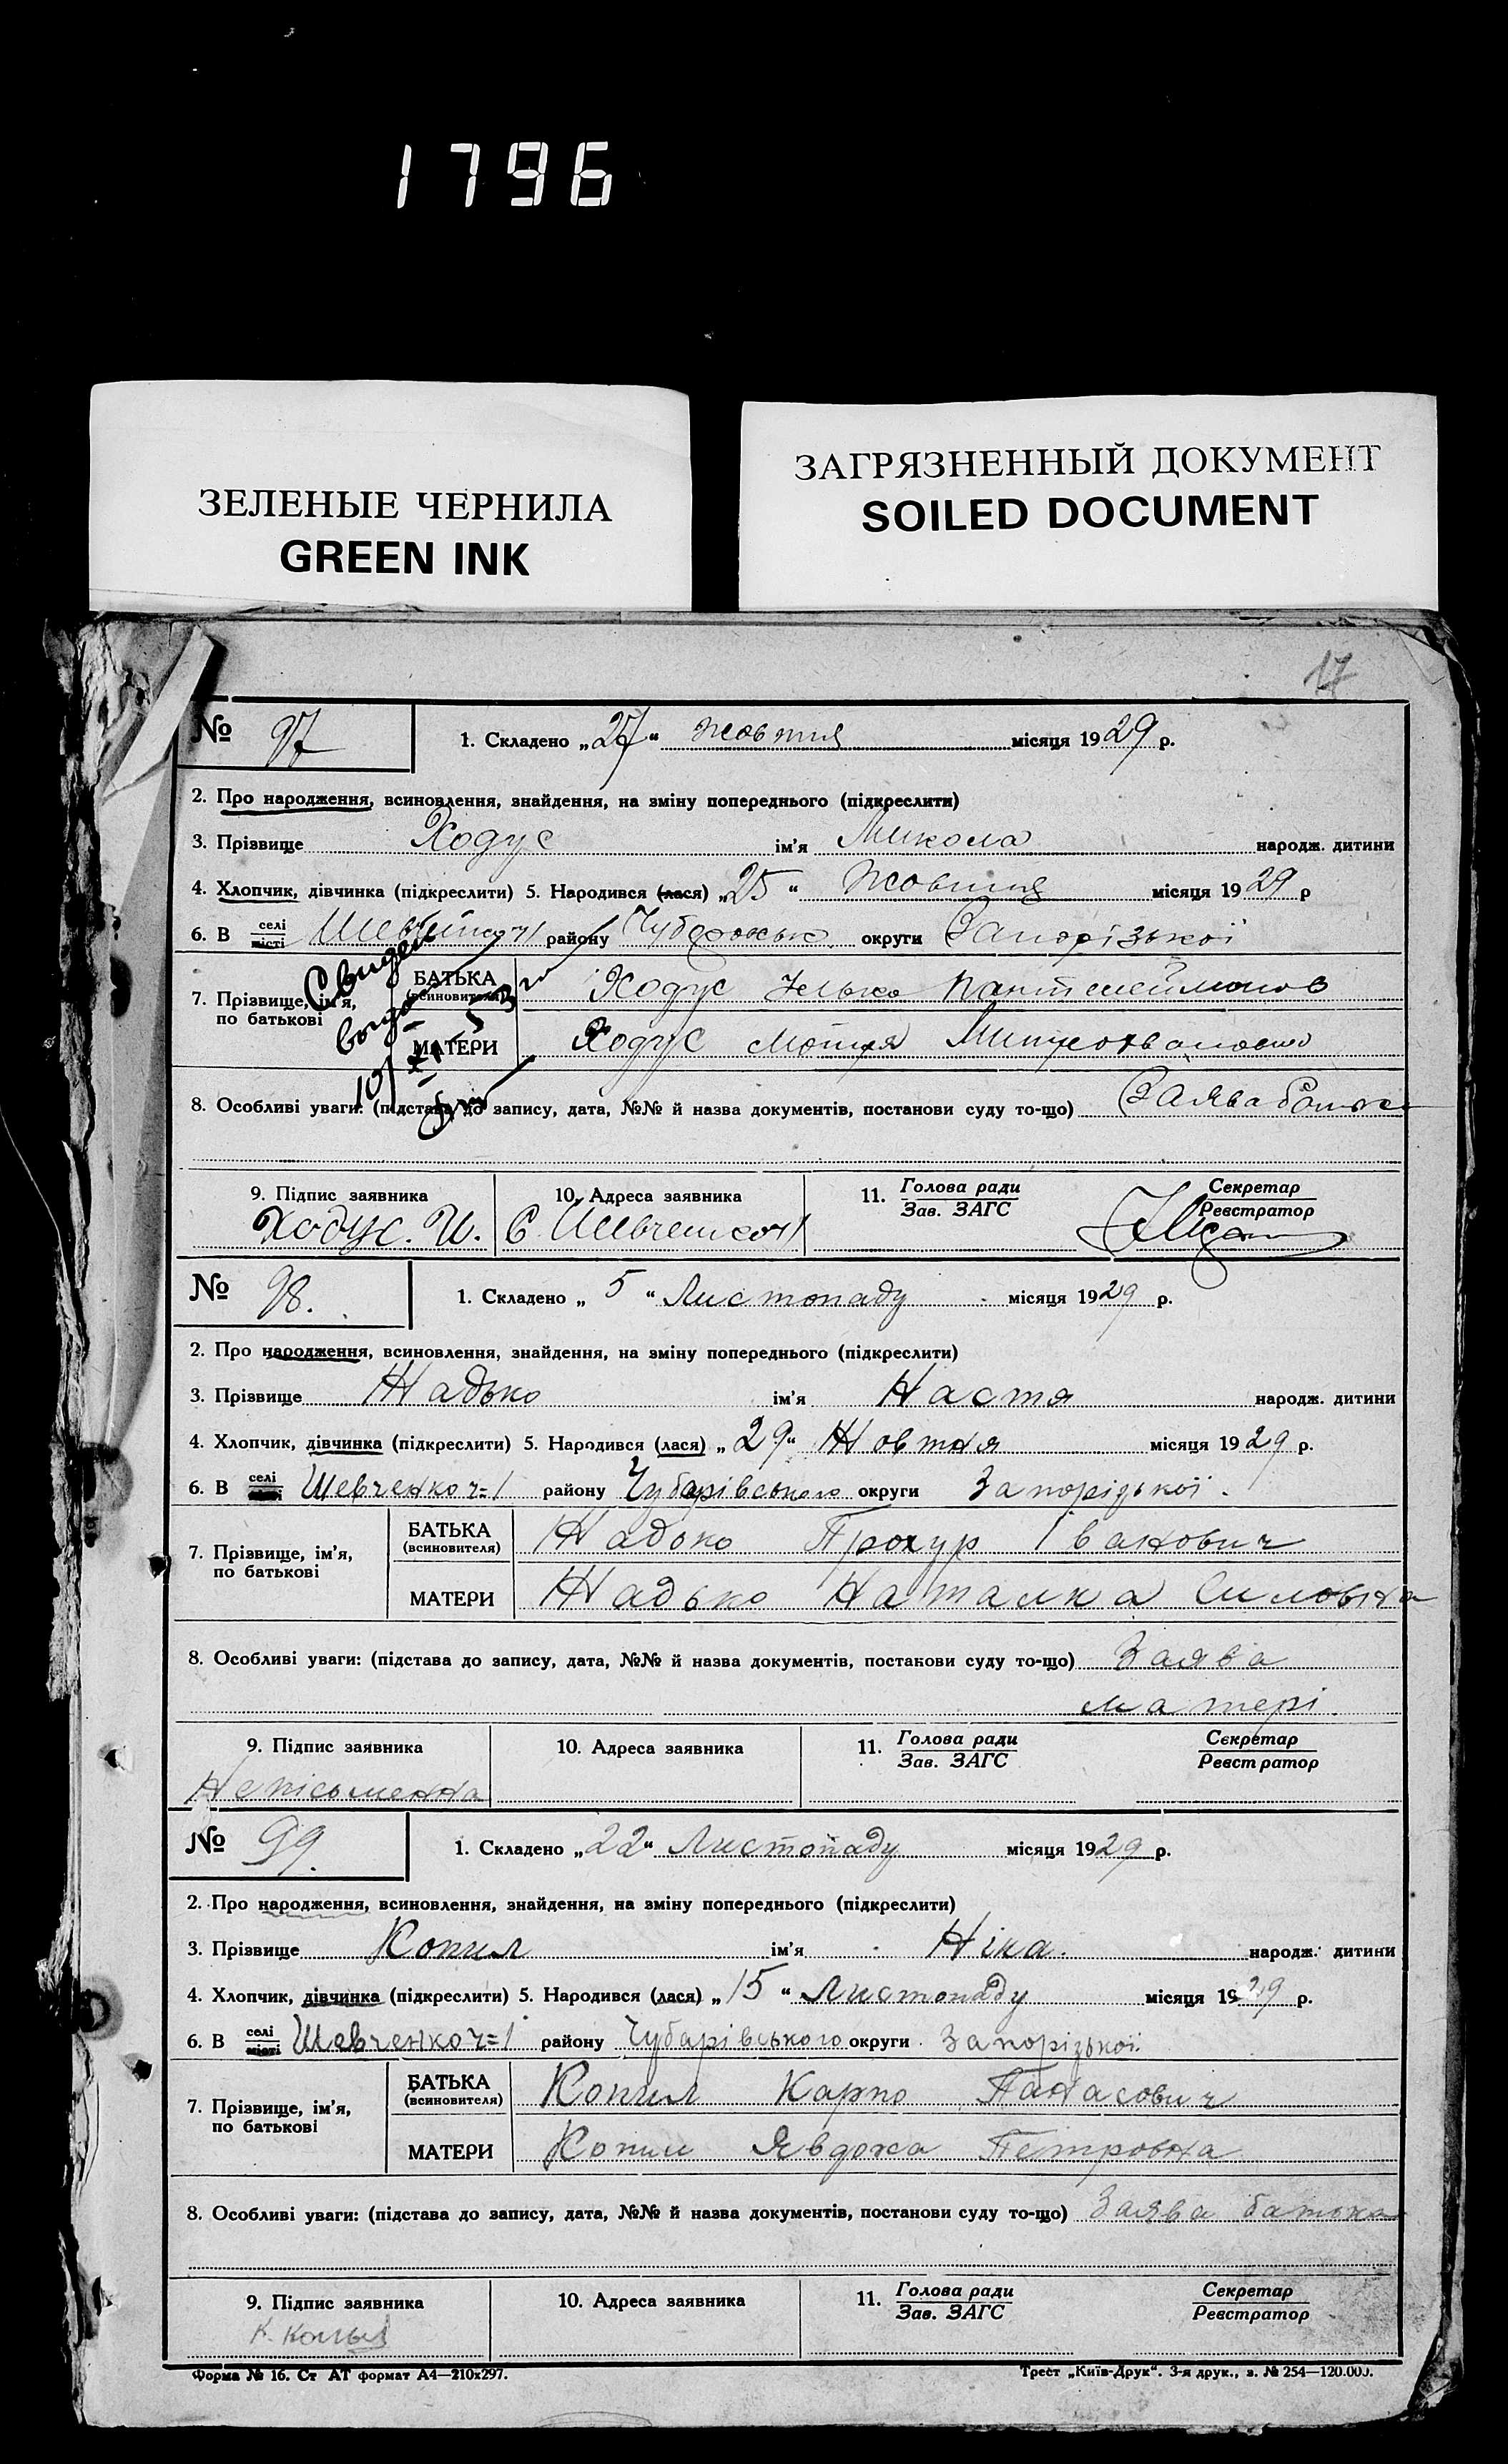 1796
ЗЕЛЕНЫЕ ЧЕРНИЛА
GREEN INK
ЗАГРЯЗНЕННЫЙ ДОКУМЕНТ
SOILED DOCUMENT
17
№ 97 1. Складено „27“ жовтня місяця 1929 р.
2. Про народження, всиновлення, знайдення, на зміну попереднього (підкреслити)
3. Прізвище Ходус ім'я Микола народж. дитини
4. Хлопчик, дівчинка (підкреслити) 5. Народився (лася) „25“ Жовтня місяця 1929 р
6. В селі місті району округи Запорізької
7. Прізвище, ім'я, по батькові
БАТЬКА (всиновителя) Ходус Пантелеймонов
МАТЕРИ Ходус Мотря
8. Особливі уваги: (підстава до запису, дата, №№ й назва документів, постанови суду то-що) Заява батька
9. Підпис заявника 10. Адреса заявника 11. Голова ради Зав. ЗАГС Секретар Реєстратор
Ходус. И. С. Шевченко ч1
№ 98. 1. Складено „5“ Листопаду місяця 1929 р.
2. Про народження, всиновлення, знайдення, на зміну попереднього (підкреслити)
3. Прізвище Жадько ім'я Настя народж. дитини
4. Хлопчик, дівчинка (підкреслити) 5. Народився (лася) „29“ Жовтня місяця 1929 р.
6. В селі місті Шевченко ч=1 району Чубарівського округи Запорізької.
7. Прізвище, ім'я, по батькові
БАТЬКА (всиновителя) Жадько Прохур Іванович
МАТЕРИ Жадько Наталка Силовна
8. Особливі уваги: (підстава до запису, дата, №№ й назва документів, постанови суду то-що) Заява
матері.
9. Підпис заявника 10. Адреса заявника 11. Голова ради Зав. ЗАГС Секретар Реєстратор
Непісьменна
№ 99. 1. Складено „22“ Листопаду місяця 1929 р.
2. Про народження, всиновлення, знайдення, на зміну попереднього (підкреслити)
3. Прізвище Копил ім'я Ніна. народж. дитини
4. Хлопчик, дівчинка (підкреслити) 5. Народився (лася) „15“ Листопаду місяця 1929 р.
6. В селі місті Шевченко ч=1 району Чубарівського округи Запорізької.
7. Прізвище, ім'я, по батькові
БАТЬКА (всиновителя) Копил Карпо Панасович
МАТЕРИ Копил Явдоха Петровна
8. Особливі уваги: (підстава до запису, дата, №№ й назва документів, постанови суду то-що) Заява батька
9. Підпис заявника 10. Адреса заявника 11. Голова ради Зав. ЗАГС Секретар Реєстратор
К. Копыл
Форма № 16. Ст АТ формат А4—210х297. Трест „Київ-Друк“. 3-я друк., з. № 254—120.000.